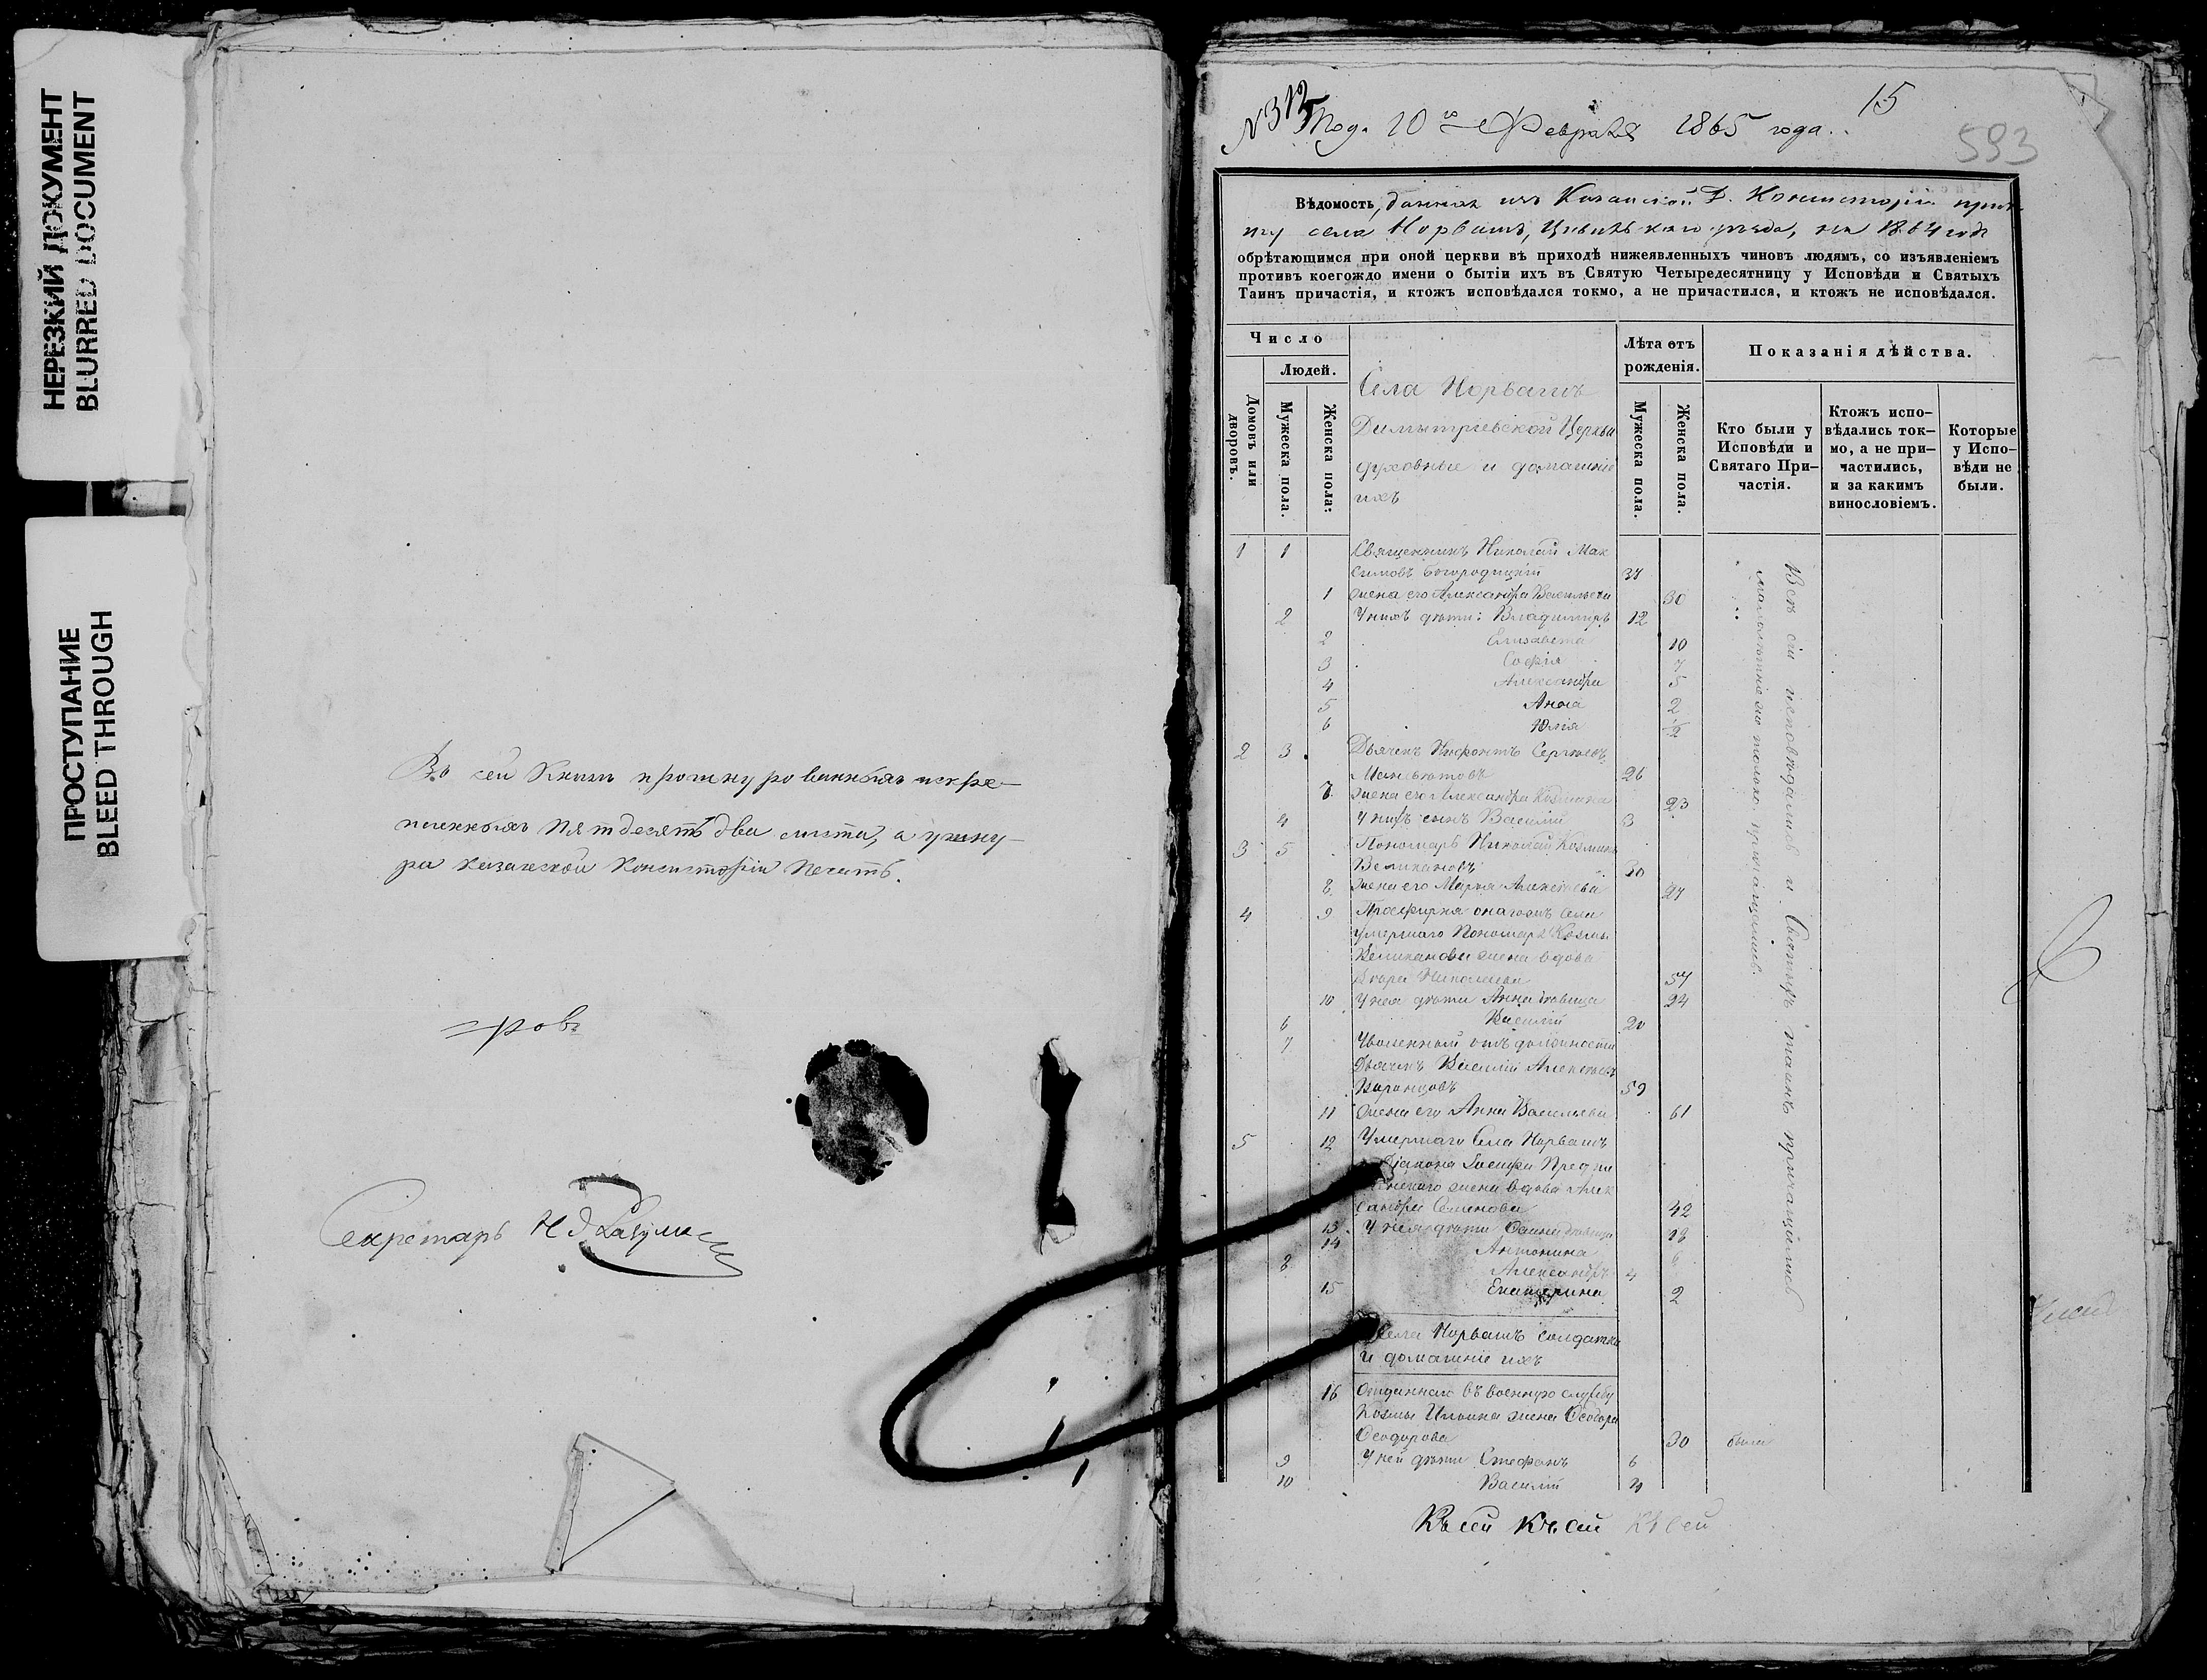 НЕРЕЗКИЙ ДОКУМЕНТ
BLURRED DOCUMENT
ПРОСТУПАНИЕ
BLEED THROUGH
Въ сей Книгѣ прошнурованныхъ и скрѣ-
пленныхъ пятдесятъ два листа, а у шну-
ра Казанской Консисторіи печать.
Секретарь
№ 313
15
Под. 10го Февраля 1865 года.
593
Вѣдомость, данная изъ Казанской Д. Консисторіи прич-
ту села Норвашъ, Цивильскаго уѣзда, на 1864 годъ
обрѣтающимся при оной церкви въ приходѣ нижеявленныхъ чиновъ людямъ, со изъявленіемъ
противъ коегождо имени о бытіи ихъ въ Святую Четыредесятницу у Исповѣди и Святыхъ
Таинъ причастія, и ктожъ исповѣдался токмо, а не причастился, и ктожъ не исповѣдался.
Число
Людей.
Домовъ или дворовъ.
Мужеска пола.
Женска пола:
Села Норвашъ
Димитріевской Церкви
духовные и домашніе
ихъ
Лѣта отъ рожденія.
Мужеска пола.
Женска пола.
Показанія дѣйства.
Кто были у Исповѣди и Святаго При-частія.
Ктожъ испо-вѣдались ток-мо, а не при-частились, и за какимъ винословіемъ.
Которые у Испо-вѣди не были.
1 1 Священникъ Николай Мак
симовъ Богородицкій 37
1 жена его Александра Васильева 30
2 У нихъ дѣти: Владиміръ 12
2 Елизавета 10
3 Софія 7
4 Александра 5
5 Анна 2
6 Юлія 1/2
2 3 Дьячекъ Ѯенофонтъ Сергѣевъ
26
7 жена его Александра Козмина 23
4 У нихъ сынъ Василій 3
3 5 Пономарь Николай Козминъ
Великановъ 30
8 жена его Марья Алексѣева 27
4 9 Просфирня онагожъ села
умершаго Пономаря Козмы
Великанова жена вдова
Николаева 57
10 У нея дѣти Анна дѣвица 24
6 Василій 20
7 Уволенный отъ должности
Дьячекъ Василій Алексѣевъ
59
11 жена его Анна Васильева 61
5 12 Умершаго Села Норвашъ
Діакона Іосифа
жена вдова Алек
сандра Семенова 42
13 У нея дѣти дѣвица 18
14 Антонина
8 Александръ 4
15 Екатерина 2
Все сіи исповѣдались и Святыхъ таинъ причащались
малолѣтніе же только причащались.
Села Норвашъ солдатки
и домашніе ихъ
16 Отданнаго въ военную службу
Козмы Ильина жена Ѳедора
Ѳеодорова 30 была
9 У ней дѣти Стефанъ 6
10 Василій 4
Къ сей Къ сей Къ сей